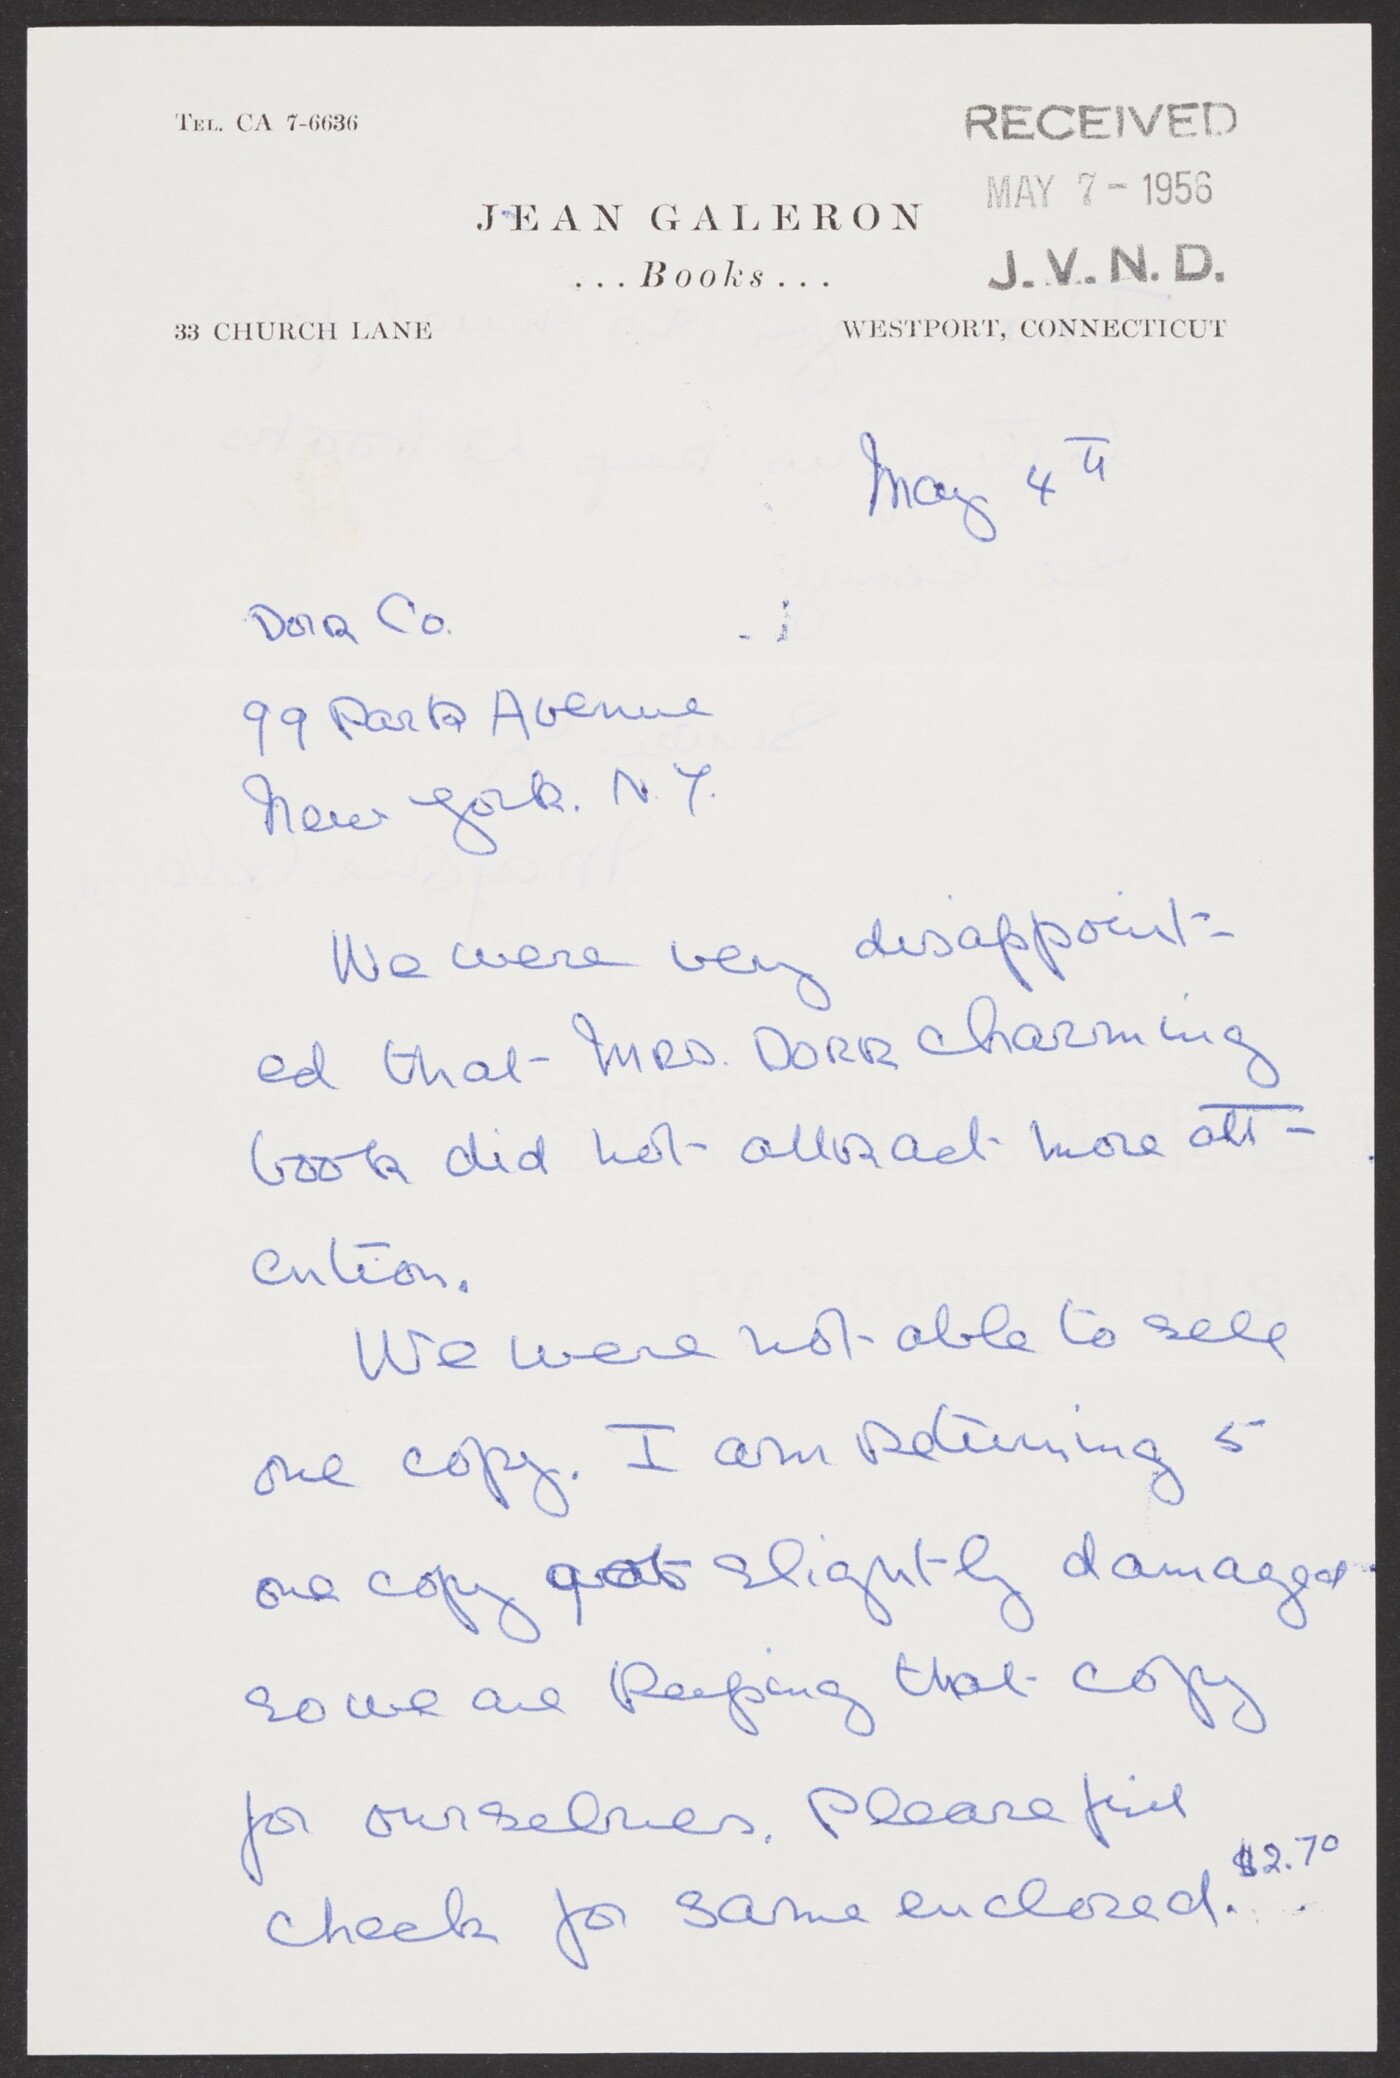 TEL. CA 7-6636
RECEIVED
MAY 7 - 1956
J. V. N. D.
JEAN GALERON
...Books...
33 CHURCH LANE
WESTPORT, CONNECTICUT
May 4th
Dorr Co.
99 Park Avenue
New York. N.Y.
We were very disappoint-
ed that Mrs. Dorr charming
book did not attract more att-
ention.
We were not able to sell
one copy. I am returning 5
one copy got slightly damaged
so we are keeping that copy
for ourselves. Please find
check for same enclosed.
$2.70